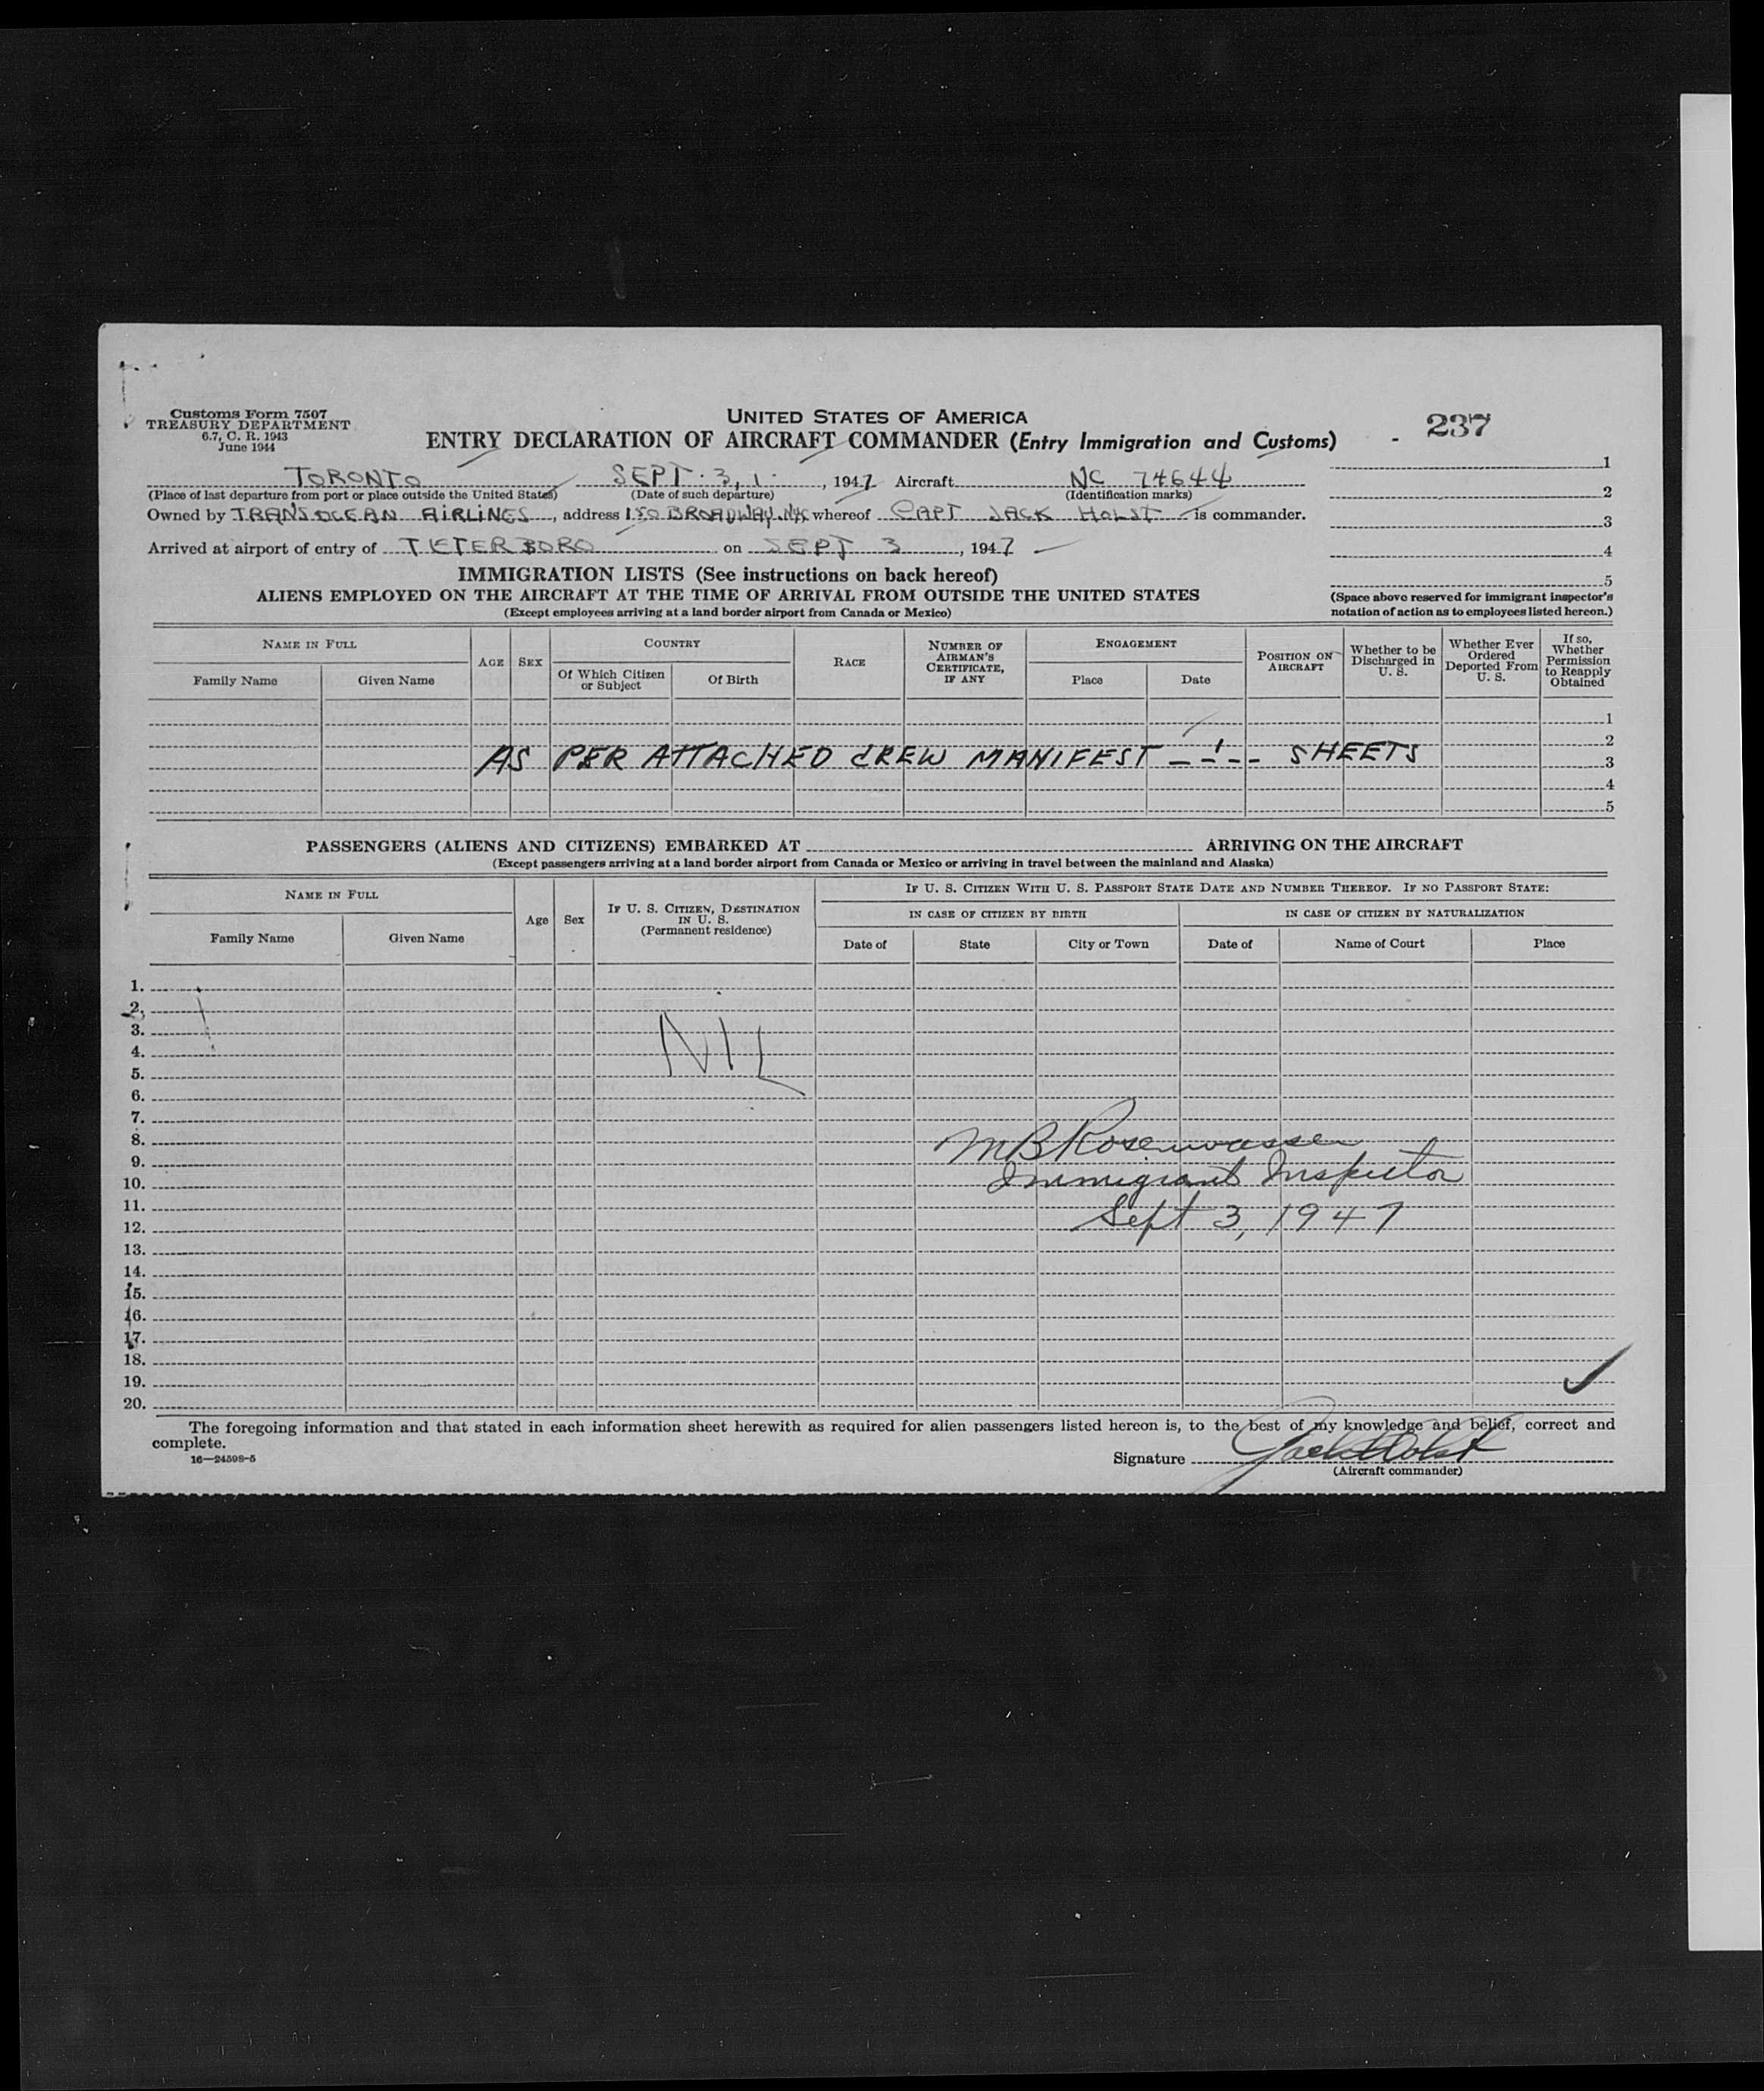 Customs Form 7507
TREASURY DEPARTMENT
6.7, C. R. 1943
June 1944
UNITED STATES OF AMERICA
ENTRY DECLARATION OF AIRCRAFT COMMANDER (Entry Immigration and Customs) - 237
TORONTO SEPT. 3, 1947 Aircraft NC 74644
(Place of last departure from port or place outside the United States) (Date of such departure) (Identification marks)
Owned by TRANSOCEAN AIRLINES, address 150 BROADWAY. NYC whereof CAPT JACK HOLST is commander.
Arrived at airport of entry of TETERBORO on SEPT 3, 1947
1
2
3
4
5
(Space above reserved for immigrant inspector's
notation of action as to employees listed hereon.)
IMMIGRATION LISTS (See instructions on back hereof)
ALIENS EMPLOYED ON THE AIRCRAFT AT THE TIME OF ARRIVAL FROM OUTSIDE THE UNITED STATES
(Except employees arriving at a land border airport from Canada or Mexico)
NAME IN FULL
Family Name Given Name
AGE
SEX
COUNTRY
Of Which Citizen or Subject
Of Birth
RACE
NUMBER OF AIRMAN'S CERTIFICATE, IF ANY
ENGAGEMENT
Place Date
POSITION ON AIRCRAFT
Whether to be Discharged in U. S.
Whether Ever Ordered Deported From U. S.
If so, Whether Permission to Reapply Obtained
1
2
AS PER ATTACHED CREW MANIFEST – 1 – – SHEETS 3
4
5
PASSENGERS (ALIENS AND CITIZENS) EMBARKED AT ARRIVING ON THE AIRCRAFT
(Except passengers arriving at a land border airport from Canada or Mexico or arriving in travel between the mainland and Alaska)
NAME IN FULL
Family Name Given Name
Age
Sex
IF U. S. CITIZEN, DESTINATION IN U. S. (Permanent residence)
IF U. S. CITIZEN WITH U. S. PASSPORT STATE DATE AND NUMBER THEREOF. IF NO PASSPORT STATE:
IN CASE OF CITIZEN BY BIRTH
Date of State City or Town
IN CASE OF CITIZEN BY NATURALIZATION
Date of Name of Court Place
1.
2.
3.
4. NIL
5.
6.
7.
8. M B Rosenwasser
9.
10. Immigrant Inspector
11.
12. Sept 3, 1947
13.
14.
15.
16.
17.
18.
19.
20.
The foregoing information and that stated in each information sheet herewith as required for alien passengers listed hereon is, to the best of my knowledge and belief, correct and
complete.
16—24598-5
Signature Jack Holst
(Aircraft commander)